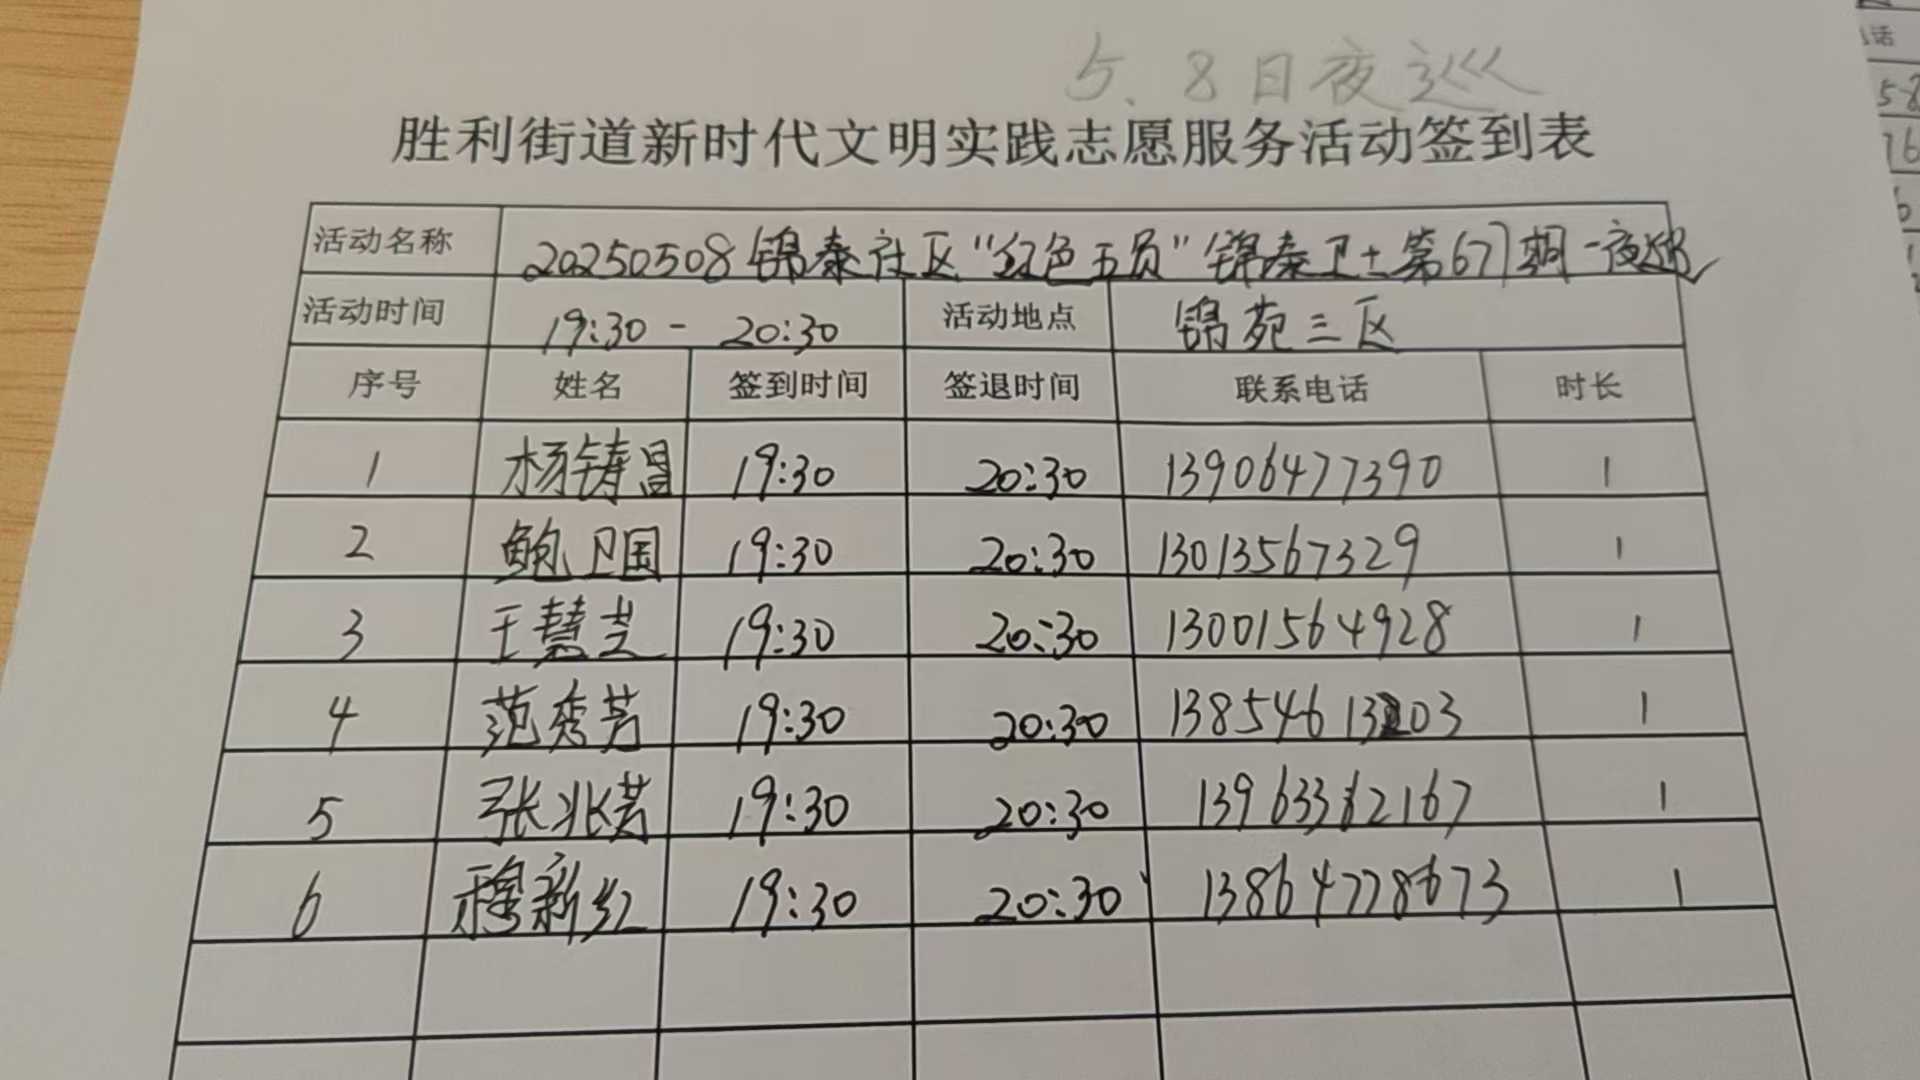 5.8日夜巡
胜利街道新时代文明实践志愿服务活动签到表
活动名称 20250508锦泰社区“红色五员”锦泰卫士第67期-夜巡
活动时间 19:30 - 20:30 活动地点 锦苑三区
序号 姓名 签到时间 签退时间 联系电话 时长
1 杨铸昌 19:30 20:30 13906477390 1
2 鲍卫国 19:30 20:30 13013567329 1
3 王慧芝 19:30 20:30 13001564928 1
4 范秀芳 19:30 20:30 1
5 张兆芸 19:30 20:30 13963362167 1
6 穆新红 19:30 20:30 13864778673 1
话
58
76